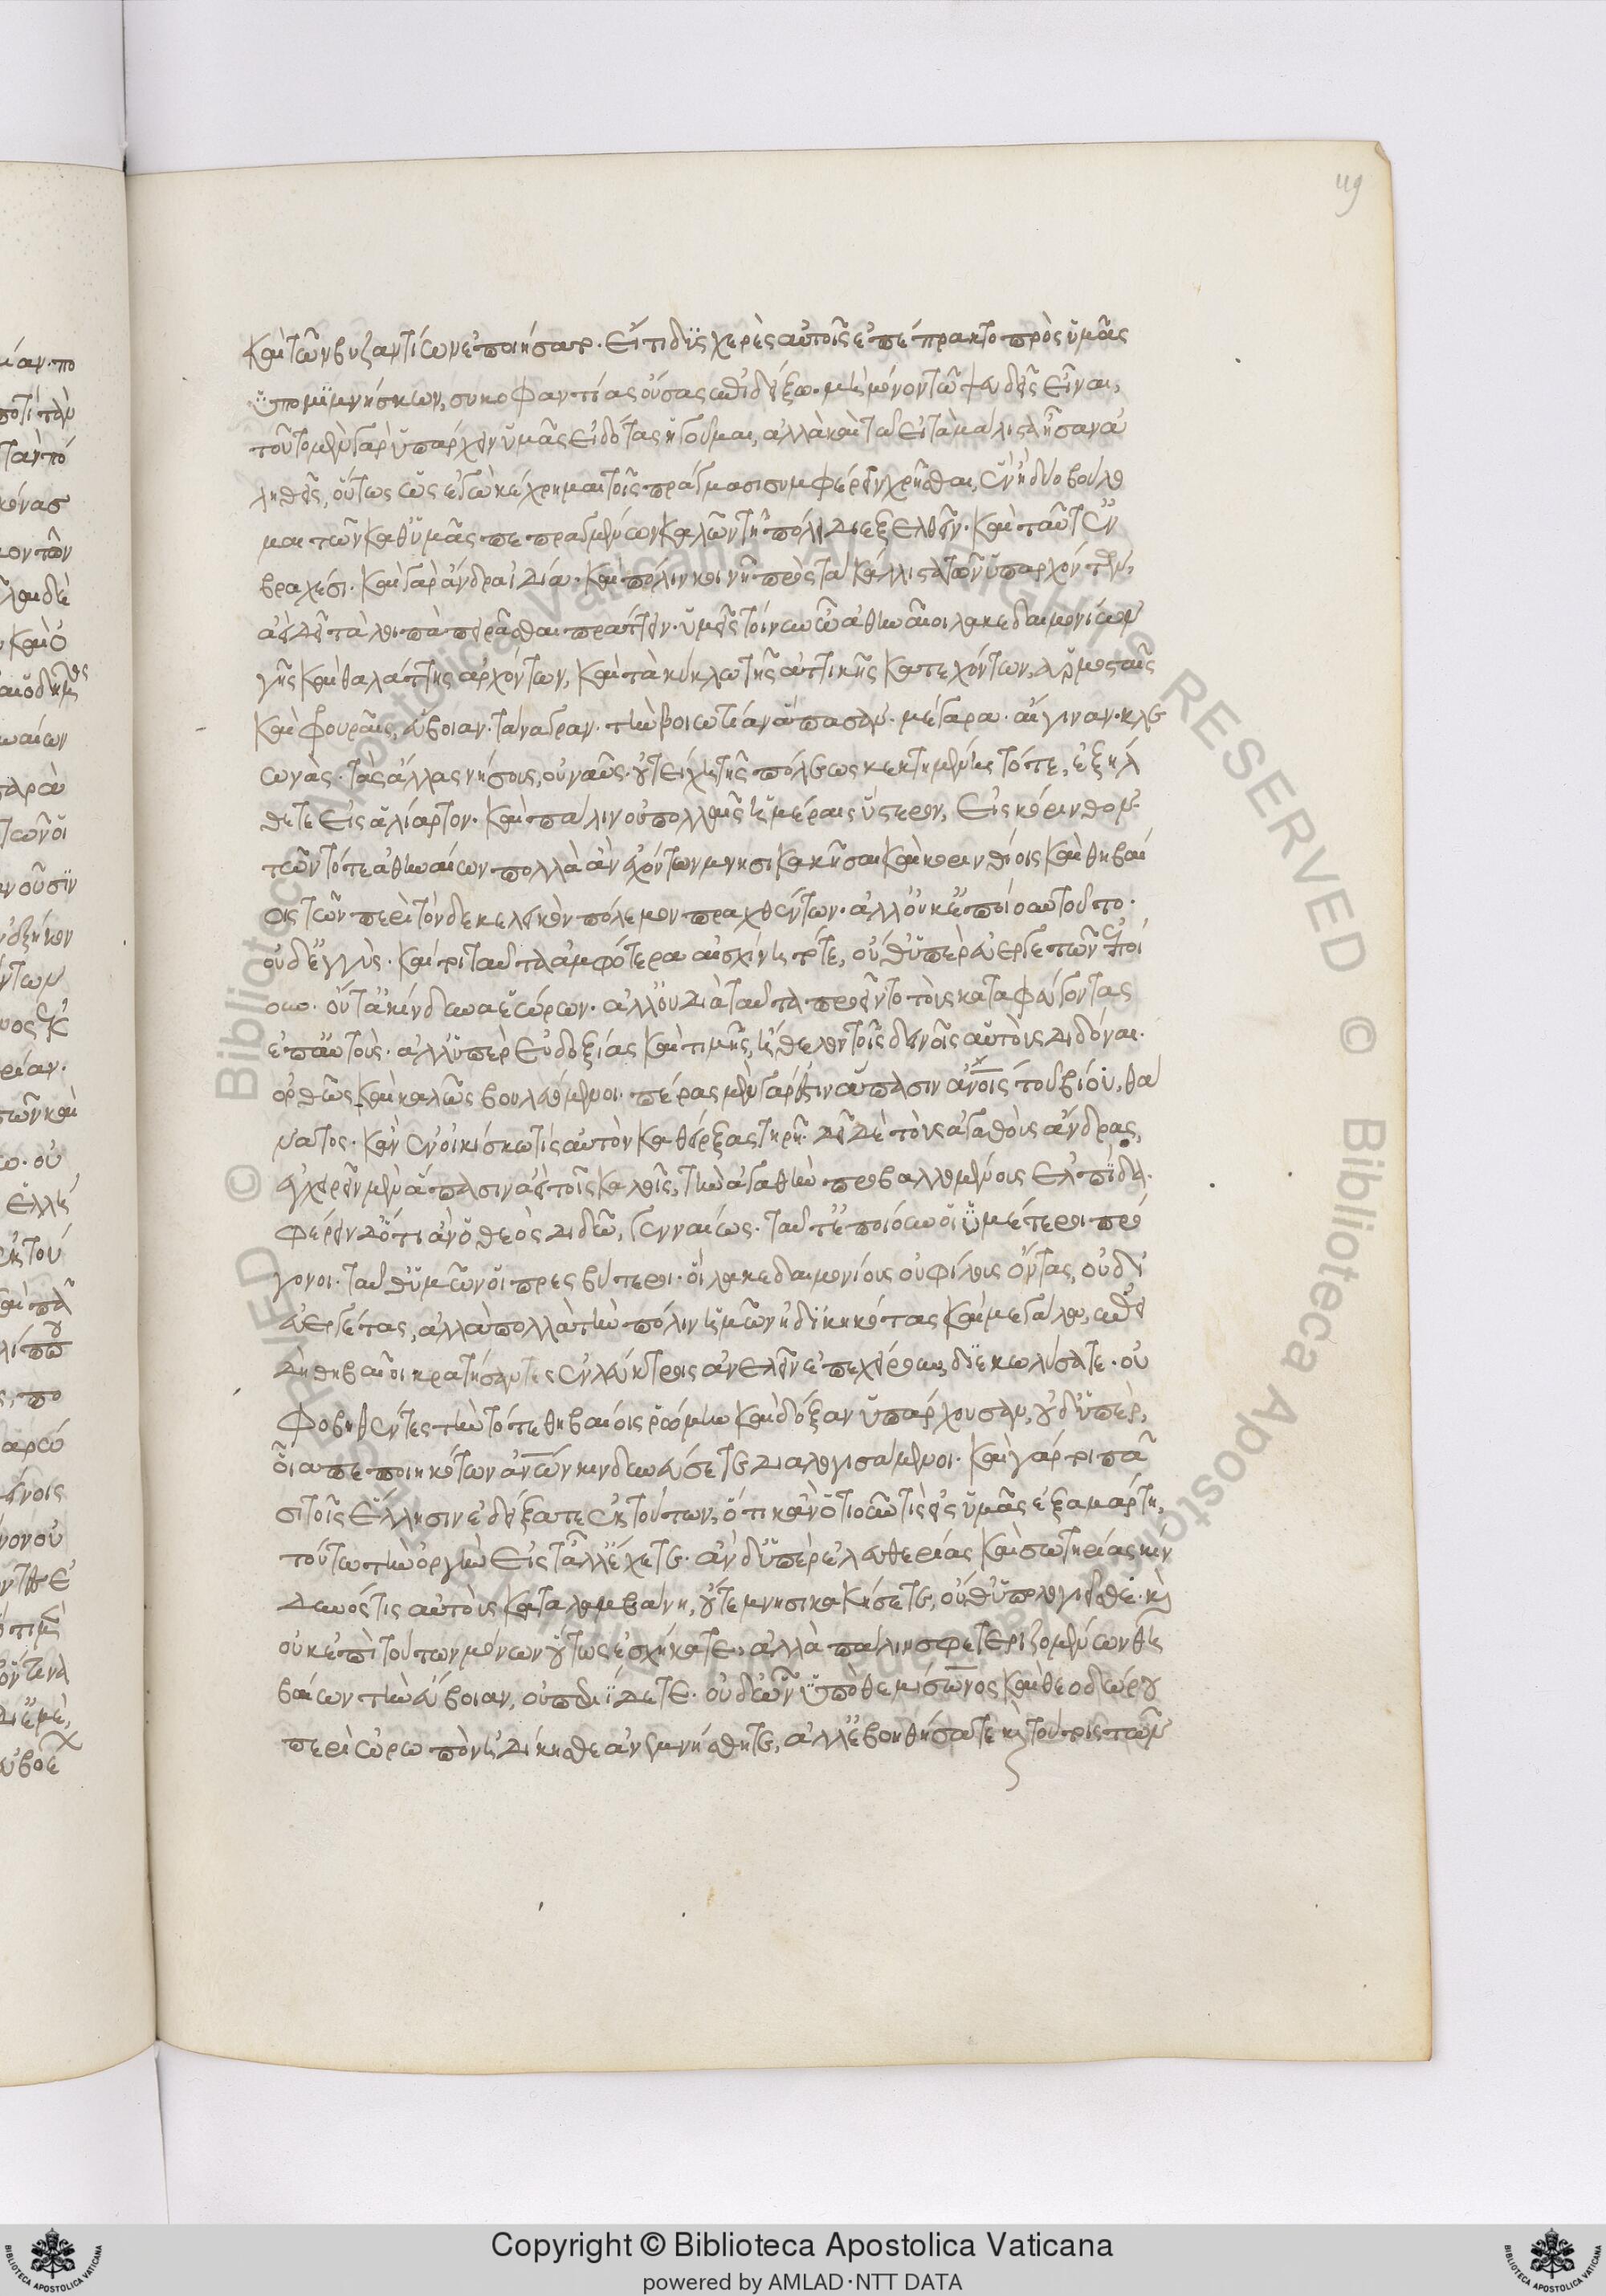 119
καὶ τῶν βυζαντίων ἐποιήσατο· εἴ τι δυσχερὲς αὐτοῖς ἐπέπρακτο πρὸς ὑμᾶς
ὑπομιμνήσκων, συκοφαντίας οὔσας ἐπιδείξω· μὴ μόνον τῶ ψευδεῖς εἶναι,
τοῦτο μὲν γὰρ ὑπάρχειν ὑμᾶς εἰδότας ἡγοῦμαι, ἀλλὰ καὶ τῶ εἰ τὰ μάλιστ' ἦσαν ἀ
ληθεῖς, οὕτως ὡς ἐγὼ κέχρημαι τοῖς πράγμασι συμφέρειν χρῆσθαι, ἓν ἢ δύο βούλο
μαι τῶν καθ' ὑμᾶς πεπραγμένων καλῶν τῆ πόλει διεξελθεῖν· καὶ ταῦτ' ἐν
βραχέσι· καὶ γὰρ ἄνδρα ἰδία· καὶ πόλιν κοινῆ πρὸς τὰ κάλλιστα τῶν ὑπαρχόντων,
ἀεὶ δεῖ τὰ λοιπὰ πειρᾶσθαι πράττειν· ὑμεῖς τοίνυν ὦ ἀθηναῖοι λακεδαιμονίων
γῆς καὶ θαλάττης ἀρχόντων, καὶ τὰ κύκλω τῆς ἀττικῆς κατεχόντων, ἁρμοσταῖς
καὶ φουραῖς, εὔβοιαν· τάναγραν· τὴν βοιωτίαν ἅπασαν· μέγαρα· αἴγιναν· κλε
ωνὰς· τὰς ἄλλας νήσους, οὐ ναῦς· οὐ τείχη τῆς πόλεως κεκτημένης τότε, ἐξήλ
θετε εἰς ἁλίαρτον· καὶ πάλιν οὐ πολλαῖς ἡμέραις ὕστερον, εἰς κόρινθον·
τῶν τότε ἀθηναίων πολλὰ ἂν ἐχόντων μνησικακῆσαι καὶ κορινθίοις καὶ θηβαί
οις τῶν περὶ τὸν δεκελεικὸν πόλεμον πραχθέντων· ἀλλ' οὐκ ἐποίουν τοῦτο·
οὐδ' ἐγγὺς· καίτοι ταῦτα ἀμφότερα αἰσχίνη τότε, οὔθ' ὑπὲρ εὐεργετῶν ἐποί
ουν· οὔτ' ἀκίνδυνα ἑώρων· ἀλλ' οὐ διὰ ταῦτα προεῖντο τοὺς καταφεύγοντας
ἐπ' αὐτοὺς· ἀλλ' ὑπὲρ εὐδοξίας καὶ τιμῆς, ἤθελον τοῖς δεινοῖς αὑτοὺς διδόναι·
ὀρθῶς καὶ καλῶς βουλευόμενοι· πέρας μὲν γάρ ἐστιν ἅπασιν ἀνοις τοῦ βίου, θά
νατος· κἂν ἐν οἰκίσκω τίς αὑτὸν καθείρξας τηρῆ· δεῖ δὲ τοὺς ἀγαθοὺς ἄνδρας,
ἐγχειρεῖν μὲν ἅπασιν ἀεὶ τοῖς καλοῖς, τὴν ἀγαθὴν προβαλλομένοις ἐλπίδα·
φέρειν δ' ὅτι ἂν ὁ θεὸς διδῶ, γενναίως· ταῦτ' ἐποίουν οἱ ὑμέτεροι πρό
γονοι· ταῦθ' ὑμῶν οἱ πρεσβύτεροι· οἱ λακεδαιμονίους οὐ φίλους ὄντας, οὐδ'
εὐεργέτας, ἀλλὰ πολλὰ τὴν πόλιν ἡμῶν ἠδικηκότας καὶ μεγάλα, ἐπει
δὴ θηβαῖοι κρατήσαντες ἐν λεύκτροις ἀνελεῖν ἐπεχείρουν, διεκωλύσατε· οὐ
φοβηθέντες τὴν τότε θηβαίοις ῥώμην καὶ δόξαν ὑπάρχουσαν, οὐδ' ὑπὲρ,
οἷα πεποιηκότων ἀνων κινδυνεύσετε διαλογισάμενοι· καὶ γάρ τοι πᾶ
σι τοῖς ἕλλησιν ἐδείξατε ἐκ τούτων, ὅτι κἂν ὁτιοῦν τίς εἰς ὑμᾶς ἐξαμάρτη,
τούτω τὴν ὀργὴν εἰς τἆλλ' ἔχετε· ἂν δ' ὑπὲρ ἐλευθερίας καὶ σωτηρίας κίν
δυνός τις αὐτοὺς καταλαμβάνη, οὔτε μνησικακήσετε, οὔθ' ὑπολογιεῖσθε· κὶ
οὐκ ἐπὶ τούτων μόνων οὕτως ἐσχήκατε, ἀλλὰ πάλιν σφετεριζομένων θη
βαίων τὴν εὔβοιαν, οὐ περιίδετε· οὐδ' ὧν ὑπὸ θεμίσωνος καὶ θεοδώρου
περὶ ὠρωπὸν ἠδίκησθε ἀνεμνήσθητε, ἀλλ' ἐβοηθήσατε κὶ τούτοις τῶν
Copyright © Biblioteca Apostolica Vaticana
powered by AMLAD·NTT DATA